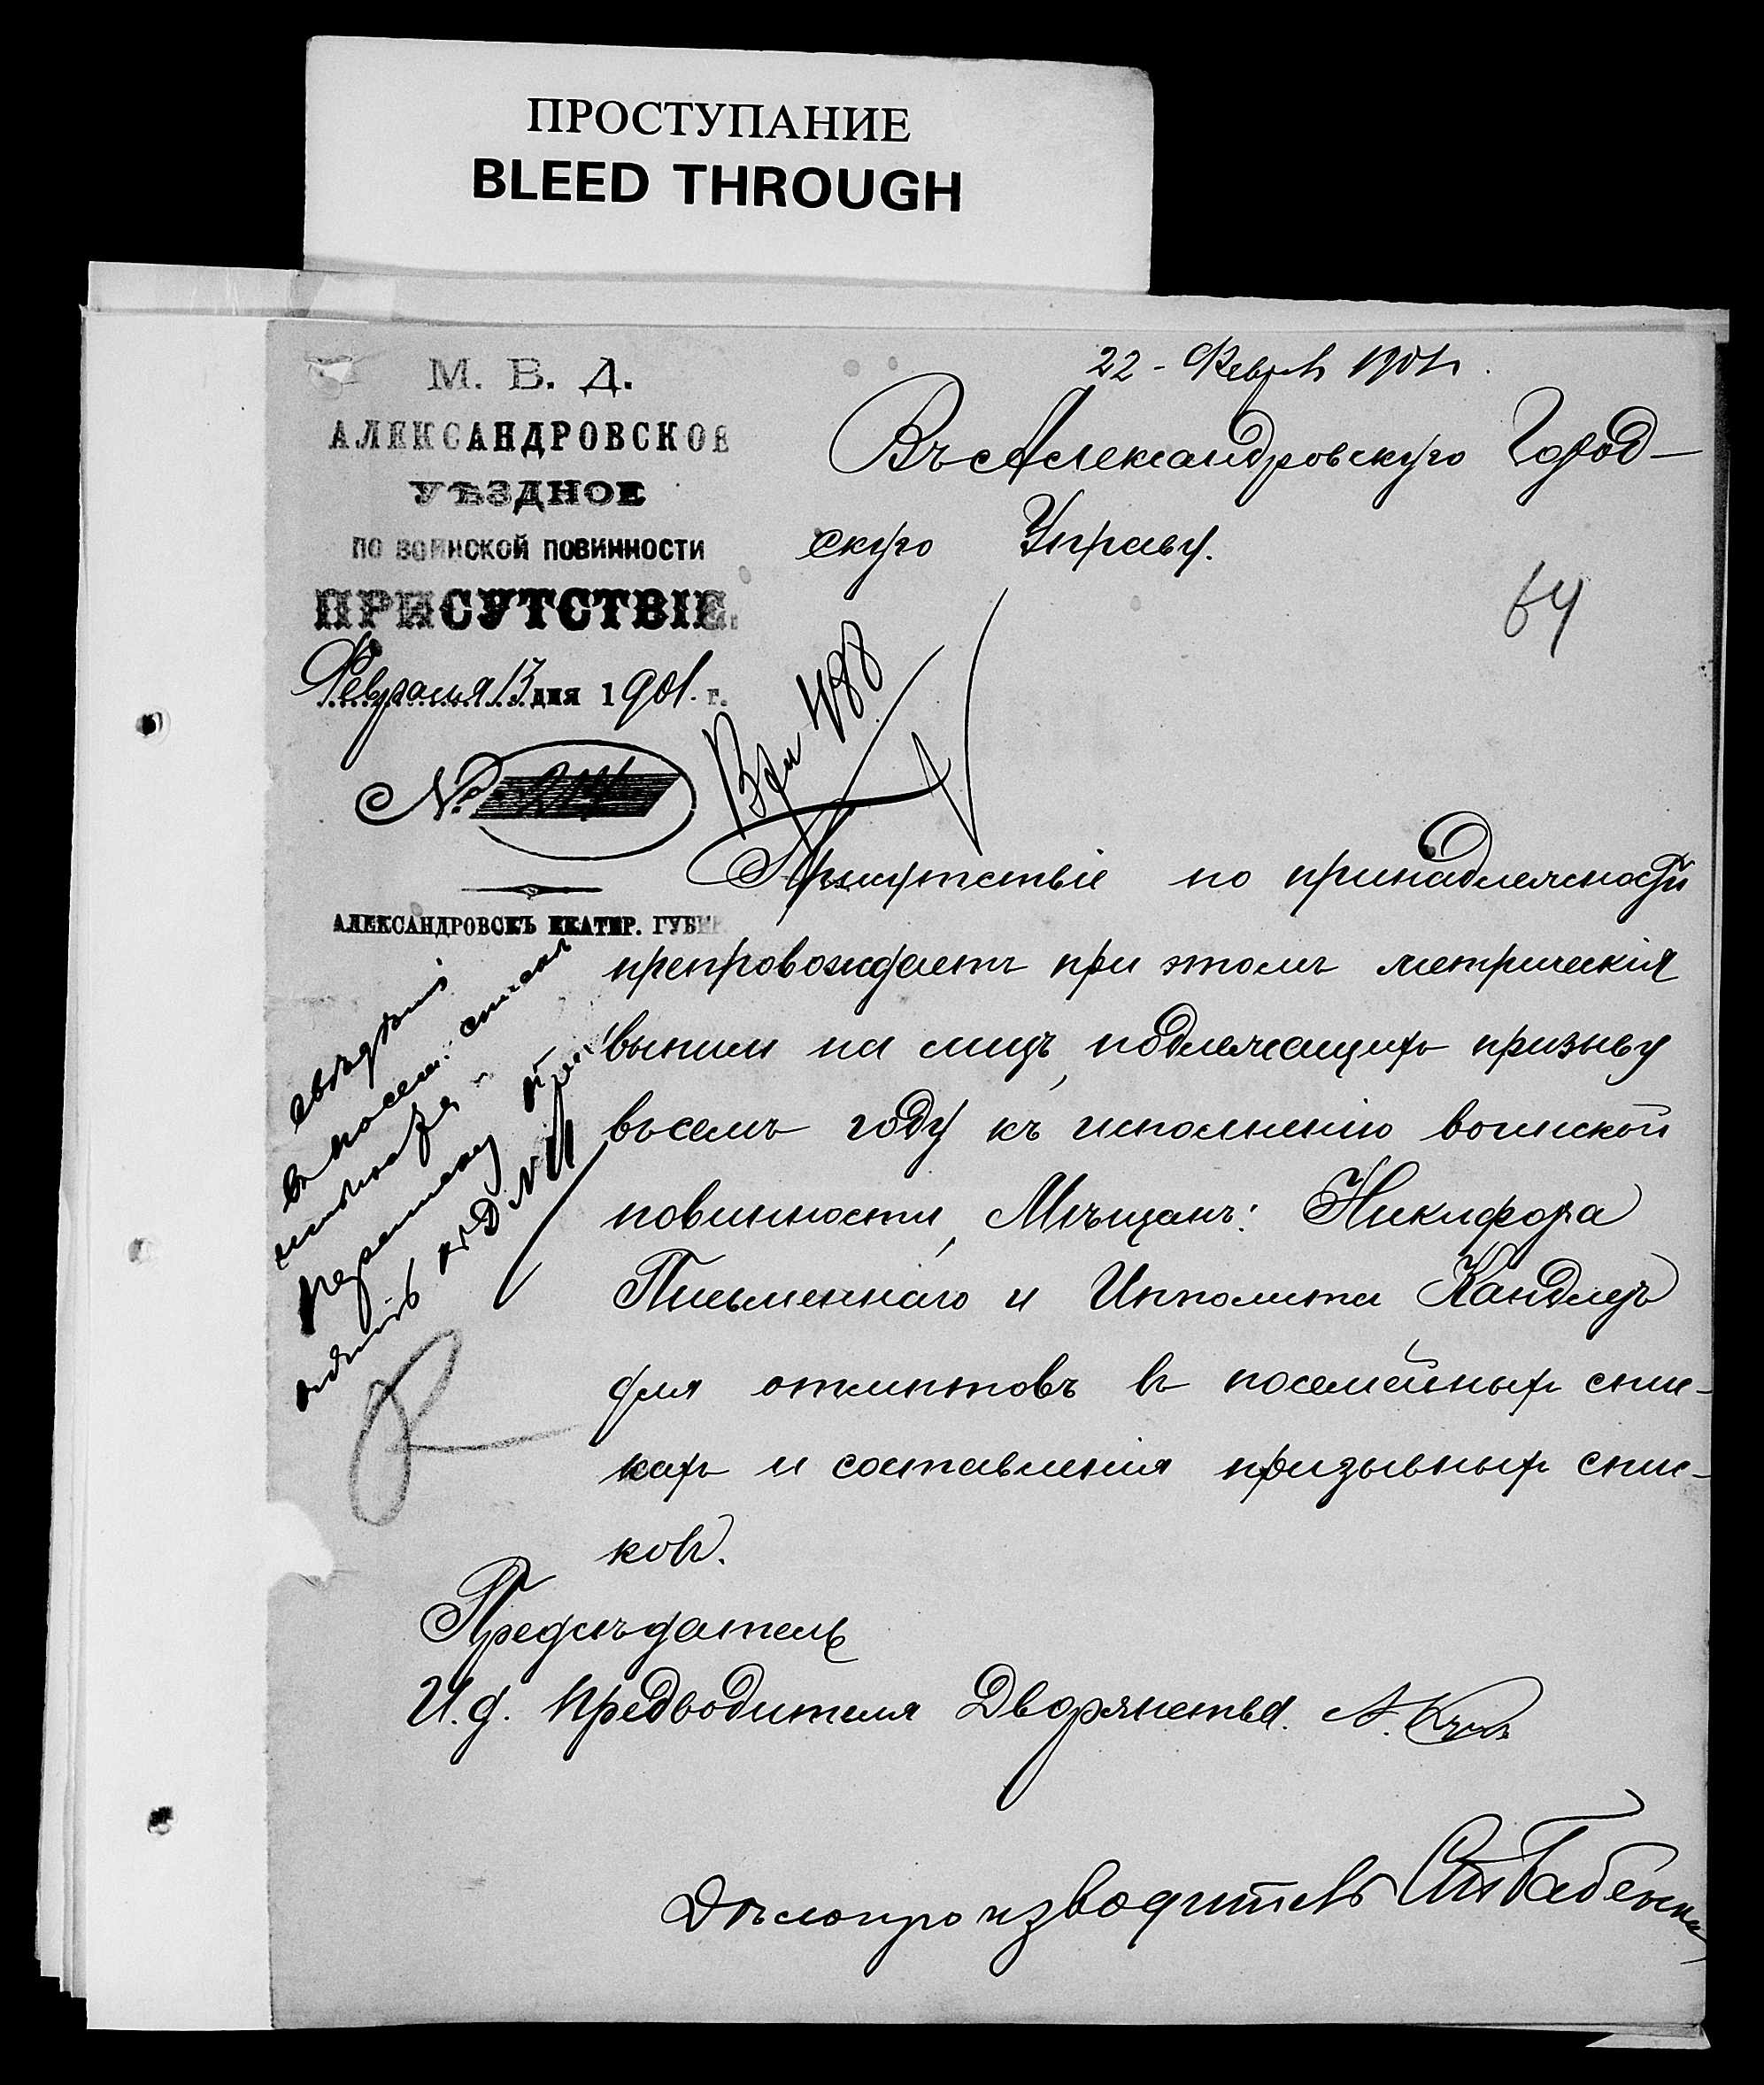 ПРОСТУПАНИЕ
BLEED THROUGH
22 - Февр 1901
М. В. Д.
АЛЕКСАНДРОВСКОЕ
УѢЗДНОЕ
ПО ВОИНСКОЙ ПОВИННОСТИ
ПРИСУТСТВІЕ.
Февраля 13 дня 1901 г.
№
АЛЕКСАНДРОВСКЪ ЕКАТЕР. ГУБЕР
Въ Александровскую Город-
скую Управу.
64
Вхм 488
Присутствіе по принадлежности
препровождаетъ при этомъ метрическія
выписи на лицъ, подлежащихъ призыву
въ семъ году къ исполненію воинской
повинности, Мѣщанъ: Никифора
Письменнаго и Ипполита Кандлеръ
для отмѣтокъ въ посемейныхъ спис-
кахъ и составленія призывныхъ спис-
ковъ.
свѣдѣнія
въ посем. списки
переписку
къ Д №
Предсѣдатель
И.д. Предводителя Дворянства. А.
Дѣлопроизводитель Бабенко